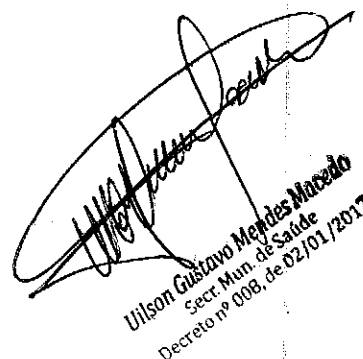 Uilson Gustavo Mendes Macedo
Secr. Mun. de Saúde
Decreto nº 008, de 02/01/2017